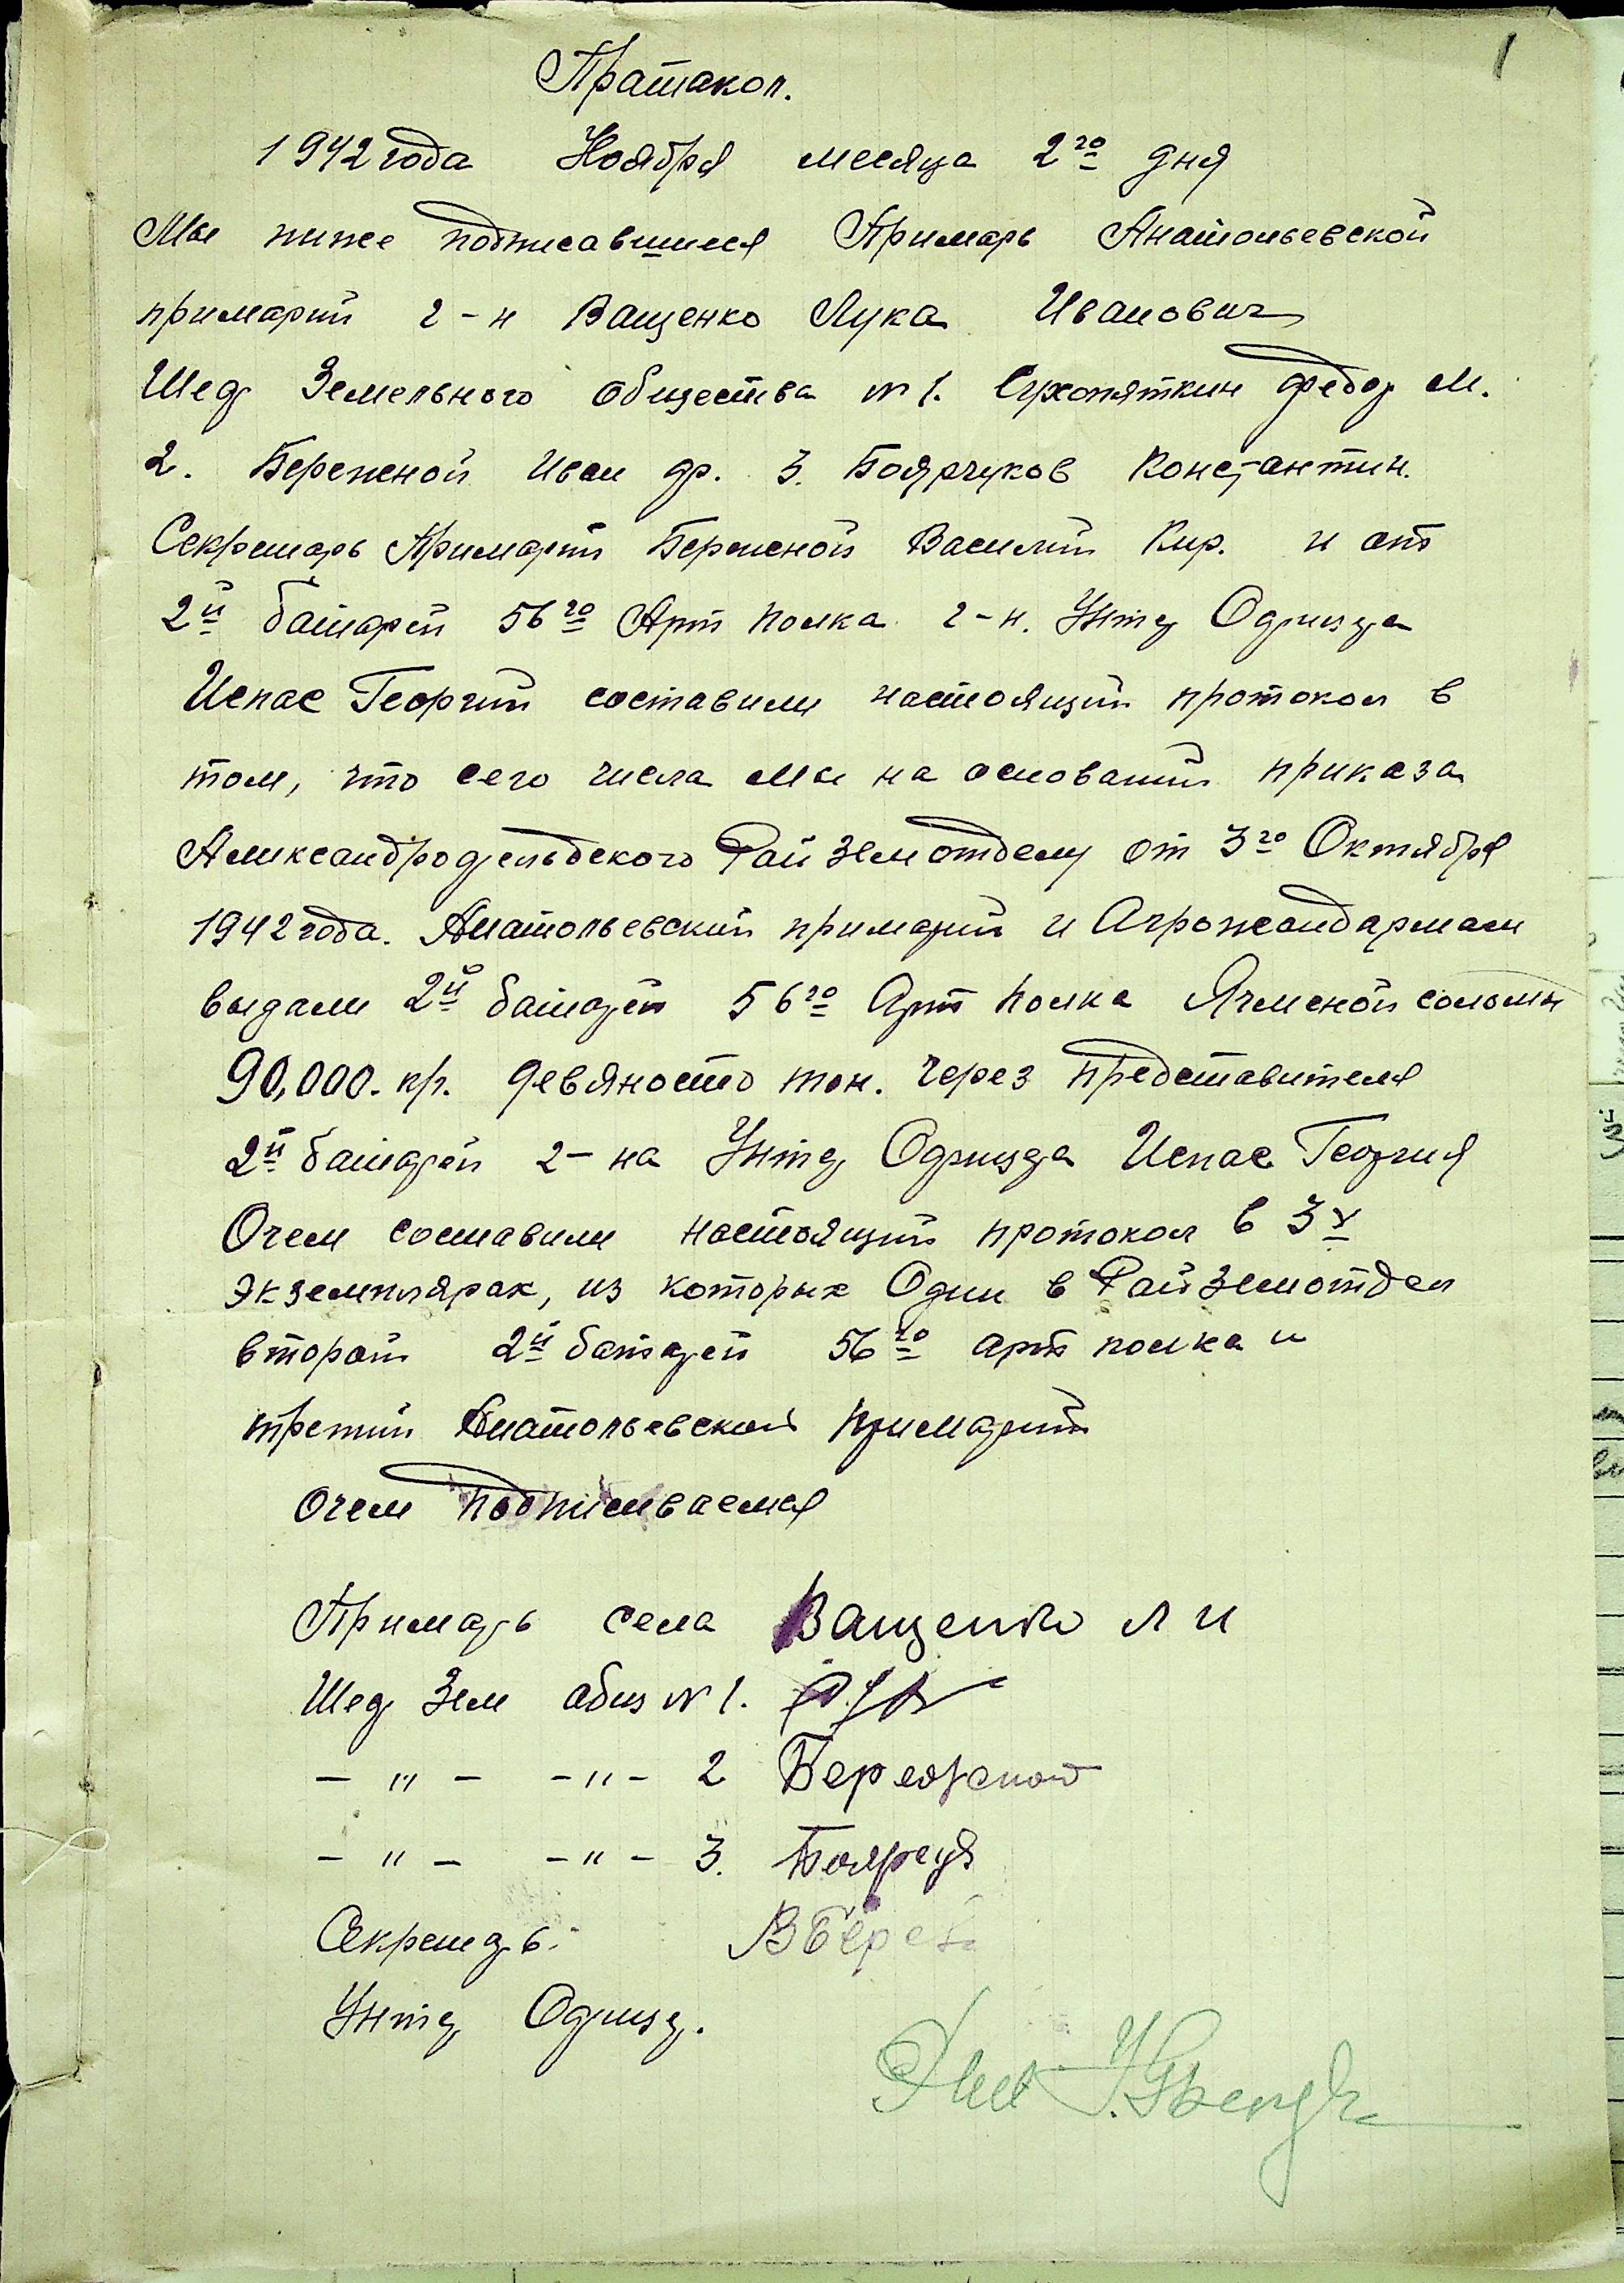 Пратакол.
1
1942 года Ноября месяца 2го дня
Мы ниже подписавшиися Примарь Анатольевской
примарии г-н Ващенко Лука Иванович
Шеф Земельного общества № 1. Сухопяткин Федор М.
2. Береженой Иван Фр. 3. Боярчуков Констянтин.
Секретарь Примарии Береженой Василий Кир. и от
2й батареи 56го Арт полка г-н. Унту Официра
Испас Георгий составили настоящий протокол в
том, что сего числа мы на основании приказа
Александрофельдского Рай Земотделу от 3го Октября
1942 года. Анатольевский примарии и Агрожандармом
выдали 2й батареи 56го Арт полка Ячменой соломы
90,000. кг. девяносто тон. через представителя
2й батареи г-на Унту Официра Испас Георгия
Очем составили настоящий протокол в 3х
экземплярах, из которых Один в Рай Земотдел
второй 2й батареи 56го арт полка и
третий Анатольевской примарии
Очем подписиваемся
Примарь села Ващенко Л И
Шеф Зем общ № 1.
– " – – " – 2 Бережной
– " – – " – 3. Боярчу
Секретарь: В Береж
Унту Официр.